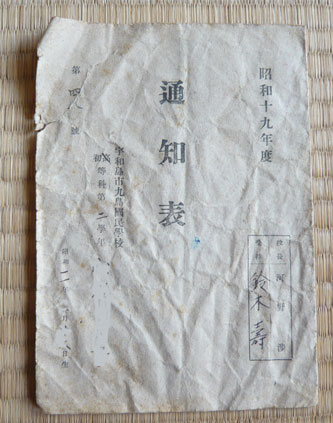 昭和十九年度
校長
受持 鈴木壽
通知表
宇和島市九島國民學校
初等科第二學年
第四號